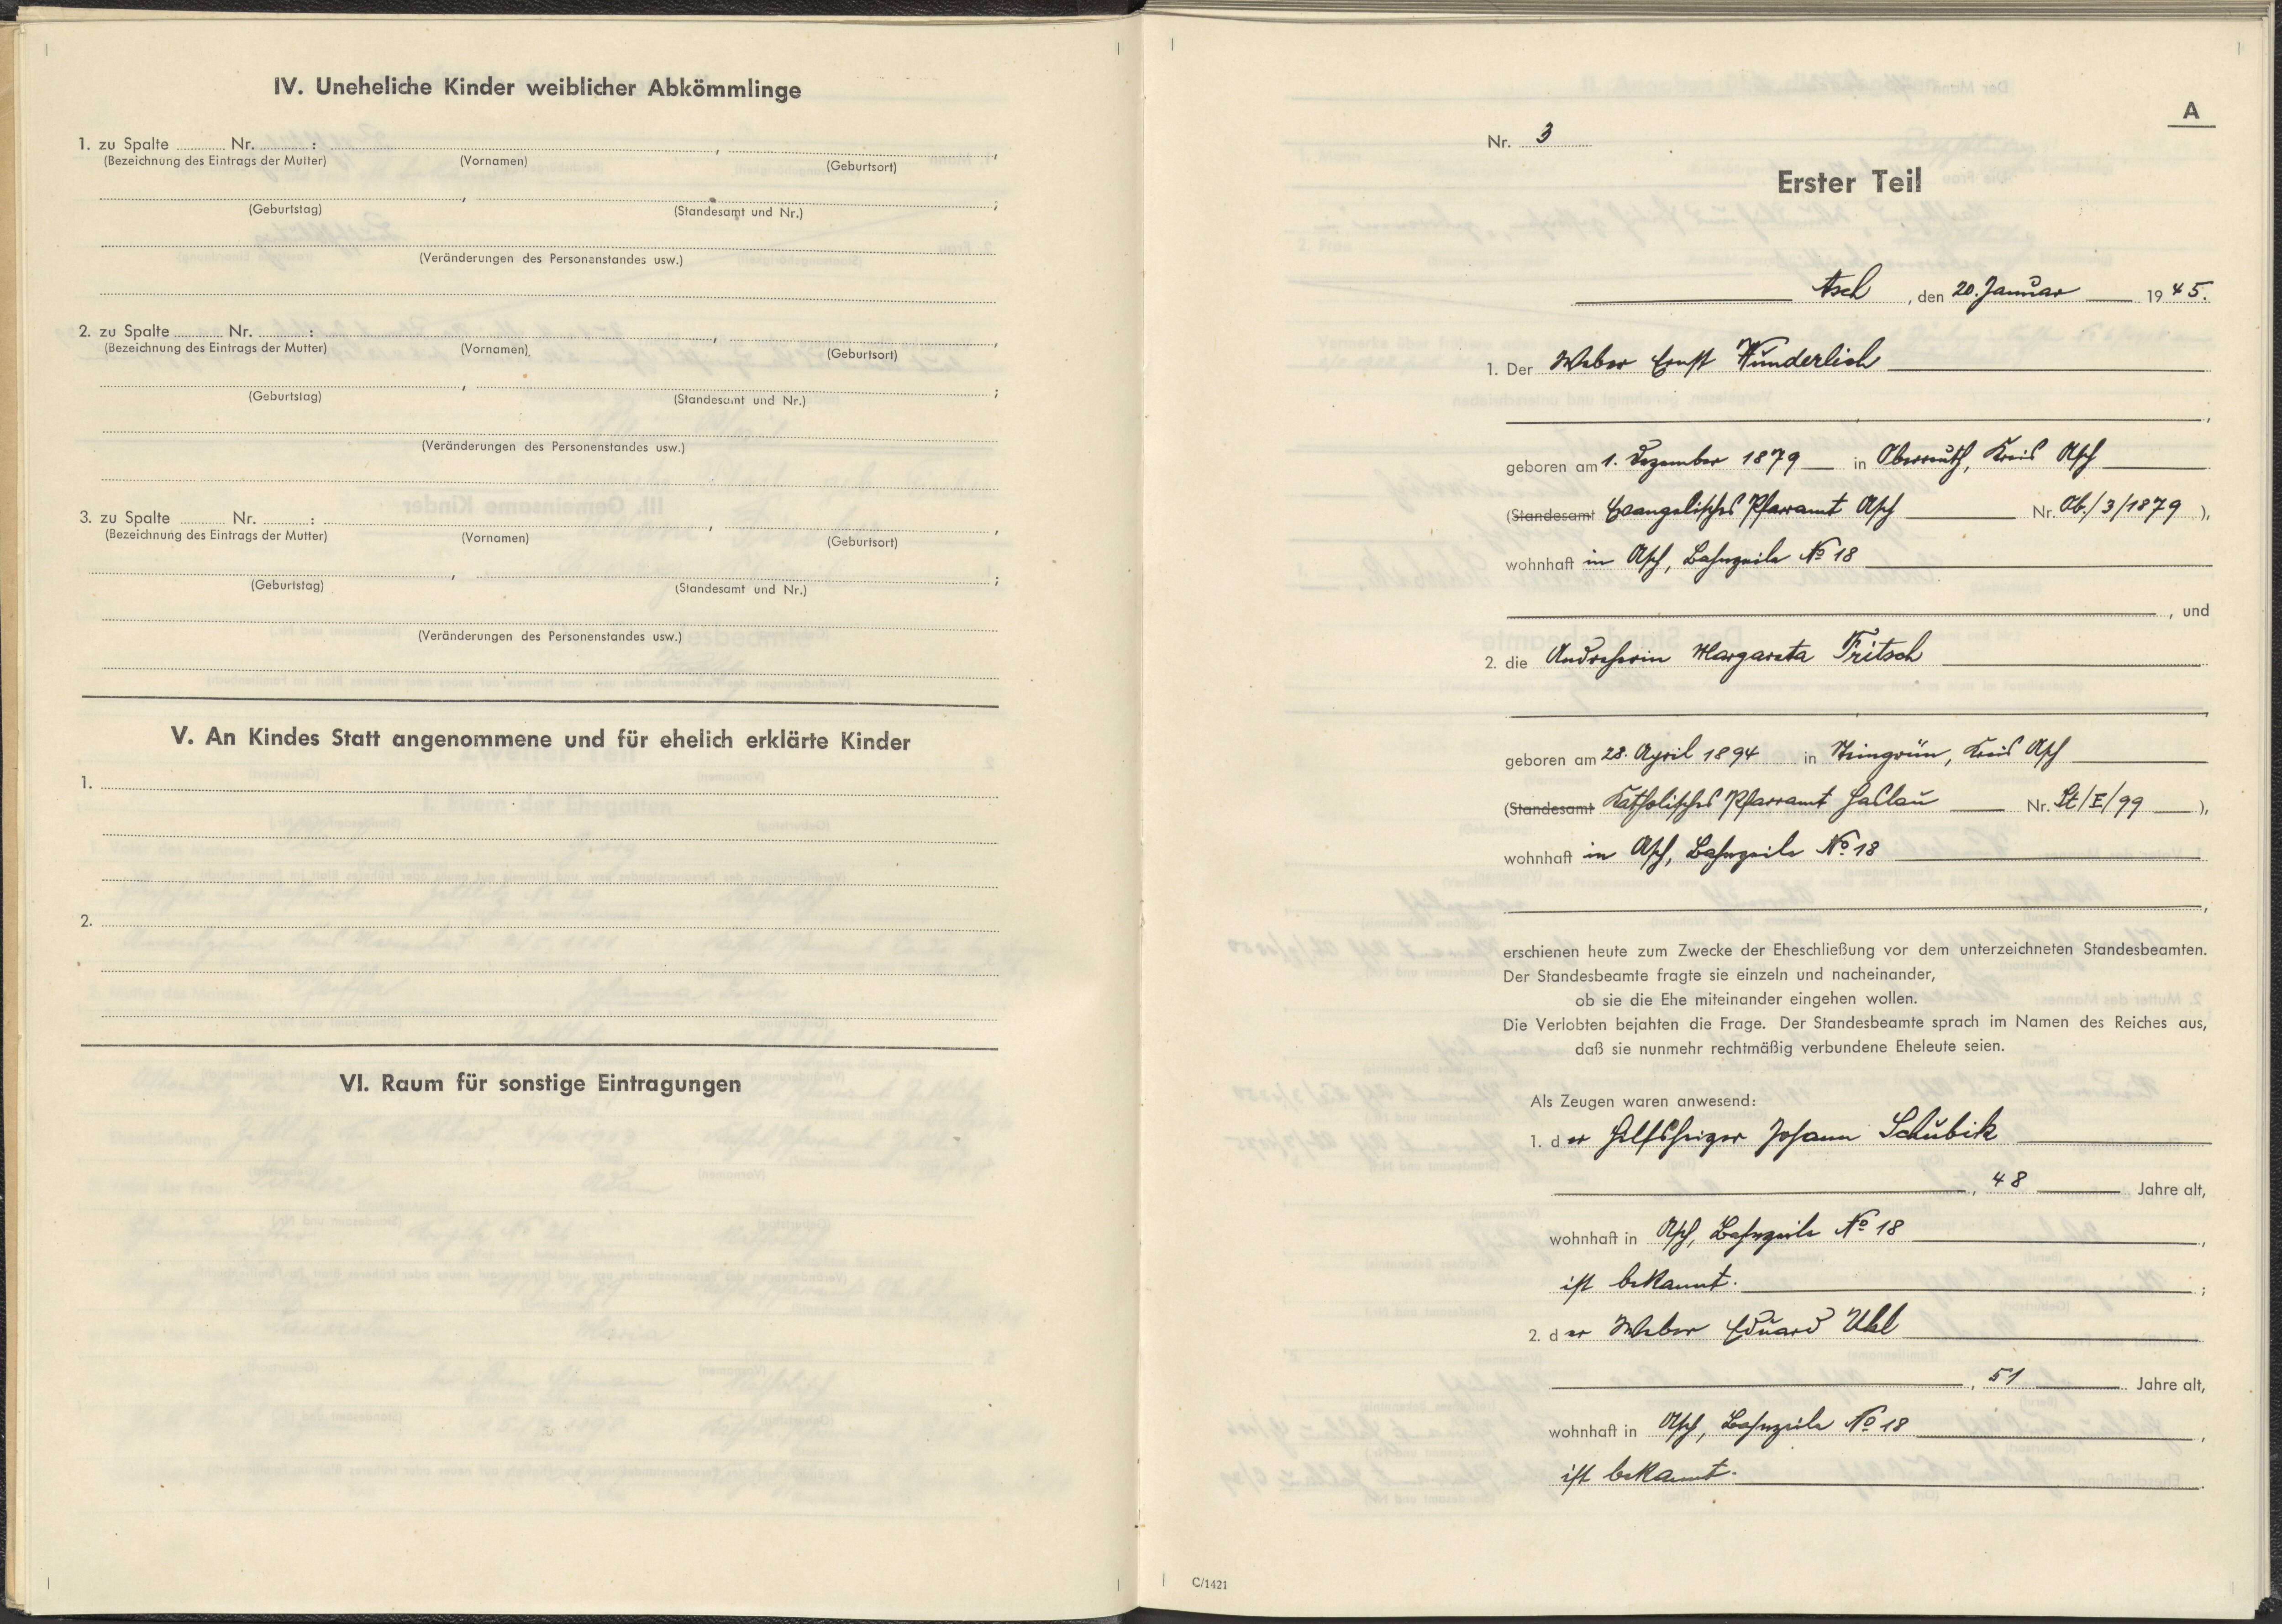 IV. Uneheliche Kinder weiblicher Abkömmlinge
1. zu Spalte ........ Nr. ........ :
(Bezeichnung des Eintrags der Mutter) (Vornamen) (Geburtsort)
(Geburtstag) (Standesamt und Nr.)
(Veränderungen des Personenstandes usw.)
2. zu Spalte ........ Nr. ........ :
(Bezeichnung des Eintrags der Mutter) (Vornamen) (Geburtsort)
(Geburtstag) (Standesamt und Nr.)
(Veränderungen des Personenstandes usw.)
3. zu Spalte ........ Nr. ........ :
(Bezeichnung des Eintrags der Mutter) (Vornamen) (Geburtsort)
(Geburtstag) (Standesamt und Nr.)
(Veränderungen des Personenstandes usw.)
V. An Kindes Statt angenommene und für ehelich erklärte Kinder
1.
2.
VI. Raum für sonstige Eintragungen
A
Nr. 3
Erster Teil
Asch, den 20. Januar 1945.
1. Der Weber Ernst Wunderlich
geboren am 1. Dezember 1879 in Oberreuth, Kreis Asch
(Standesamt Evangelisches Pfarramt Asch Nr. Ob./3/1879),
wohnhaft in Asch, Bahnzeile No 18
, und
2. die Andreherin Margareta Fritsch
geboren am 28. April 1894 in Steingrün, Kreis Asch
(Standesamt Katholisches Pfarramt Haslau Nr. St/I/99),
wohnhaft in Asch, Bahnzeile No 18
erschienen heute zum Zwecke der Eheschließung vor dem unterzeichneten Standesbeamten.
Der Standesbeamte fragte sie einzeln und nacheinander,
ob sie die Ehe miteinander eingehen wollen.
Die Verlobten bejahten die Frage. Der Standesbeamte sprach im Namen des Reiches aus,
daß sie nunmehr rechtmäßig verbundene Eheleute seien.
Als Zeugen waren anwesend:
1. der Hilfsheizer Johann Schubik
, 48 Jahre alt,
wohnhaft in Asch, Bahnzeile No 18,
ist bekannt. ;
2. der Weber Eduard Uhl
, 51 Jahre alt,
wohnhaft in Asch, Bahnzeile No 18,
ist bekannt.
C/1421